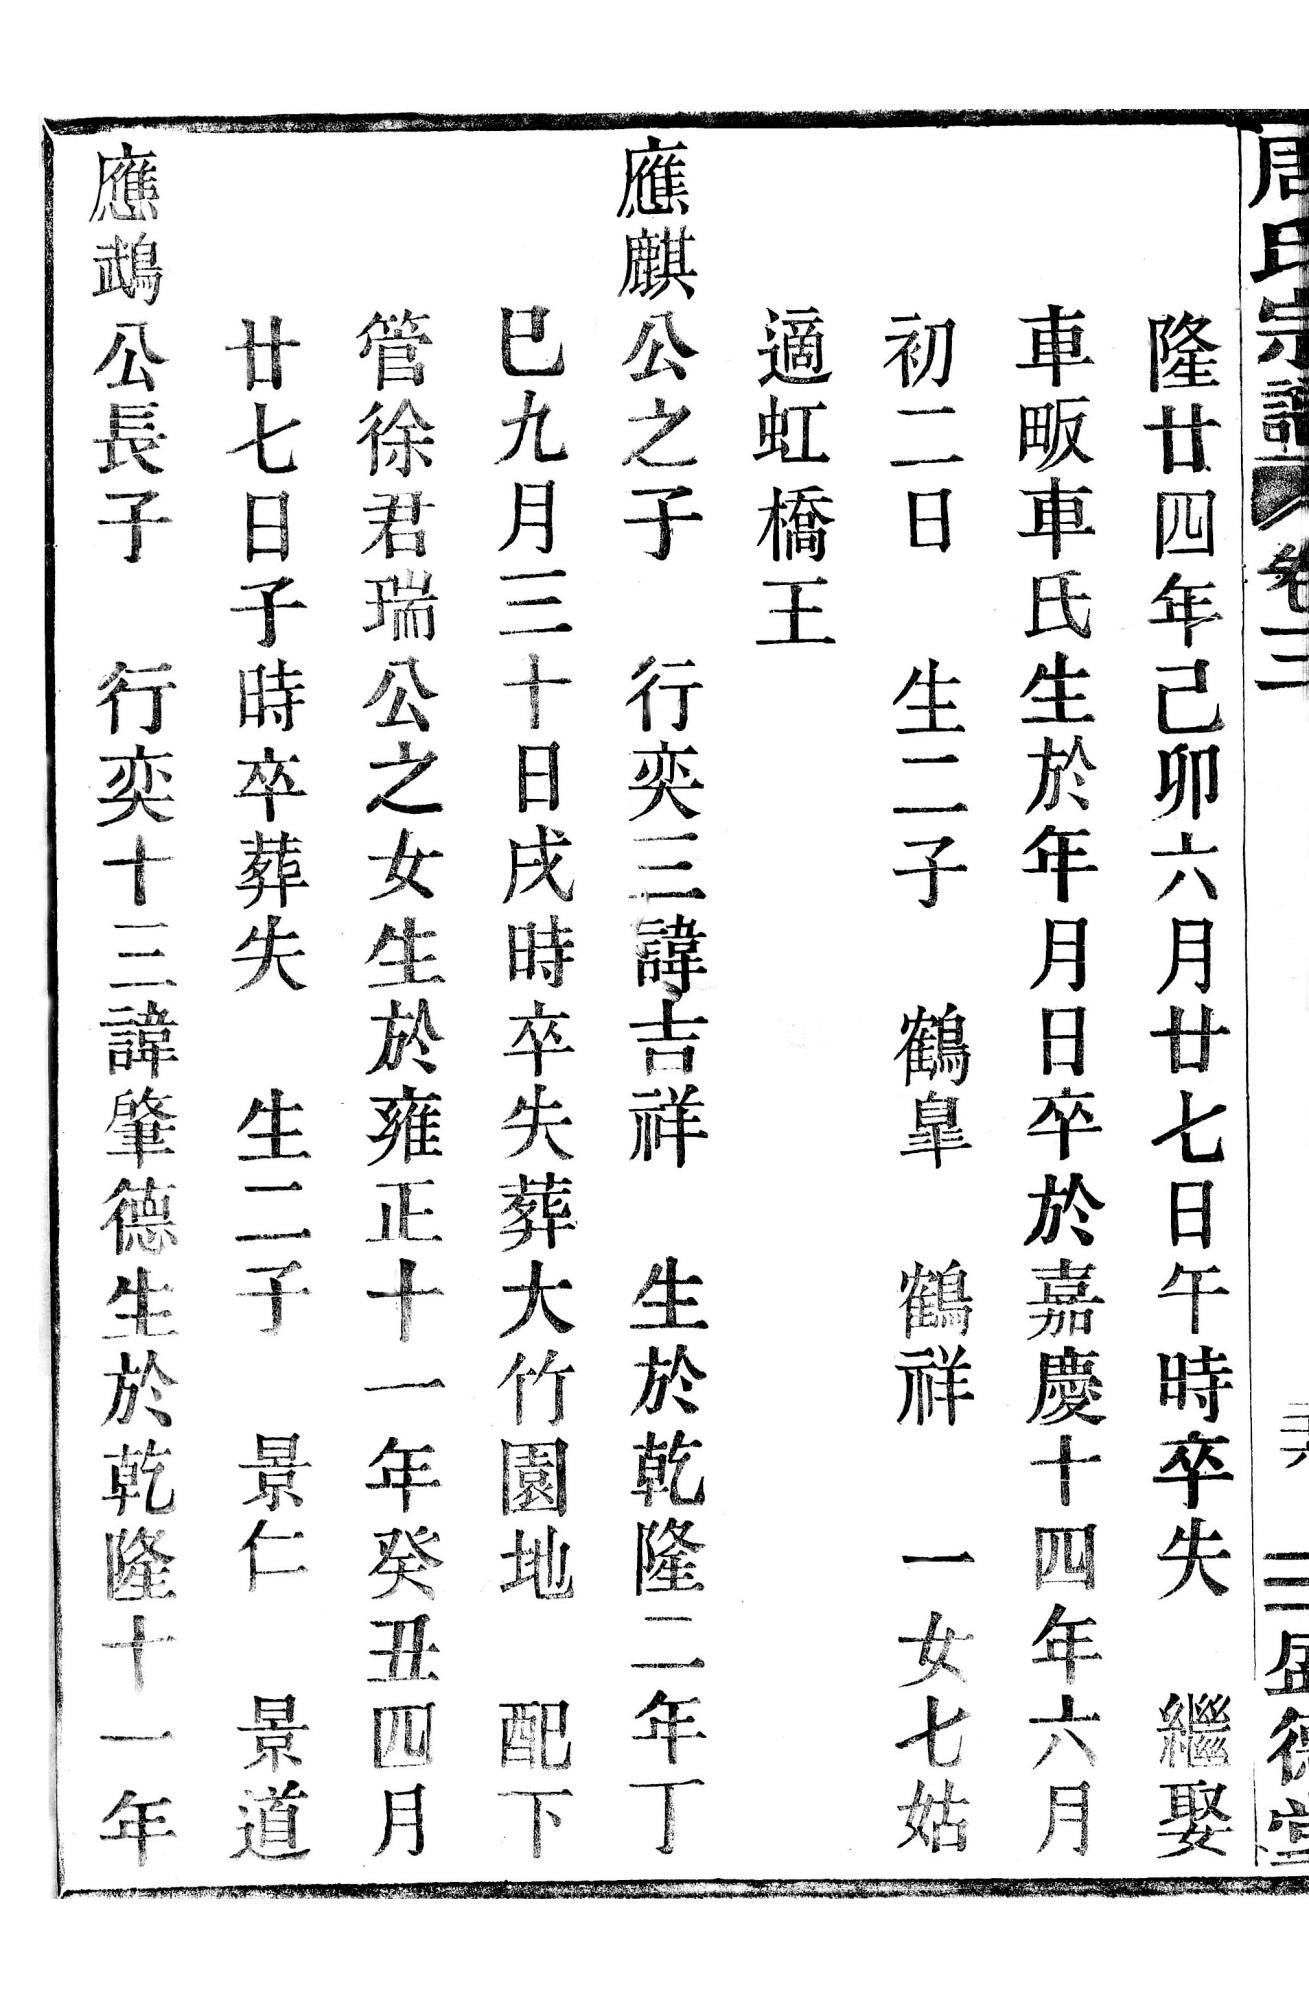 周氏宗譜 卷三 三六 三盛德堂
隆廿四年己卯六月廿七日午時卒失 繼娶
車畈車氏生於年月日卒於嘉慶十四年六月
初二日 生二子 鶴皐 鶴祥 一女七姑
適虹橋王
應麒公之子 行奕三諱吉祥 生於乾隆二年丁
巳九月三十日戌時卒失葬大竹園地 配下
管徐君瑞公之女生於雍正十一年癸丑四月
廿七日子時卒葬失 生二子 景仁 景道
應鵡公長子 行奕十三諱肇德生於乾隆十一年